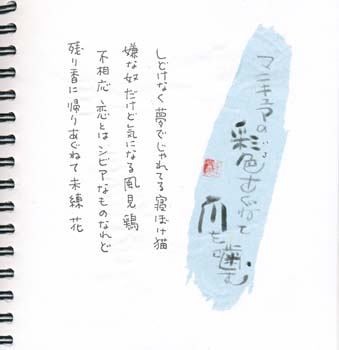 マニキュアの
彩色あぐねて
爪を噛む
しどけなく夢でじゃれてる寝ぼけ猫
嫌な奴だけど気になる風見鶏
不相応恋とはシビアなものなれど
残り香に帰りあぐねて未練花